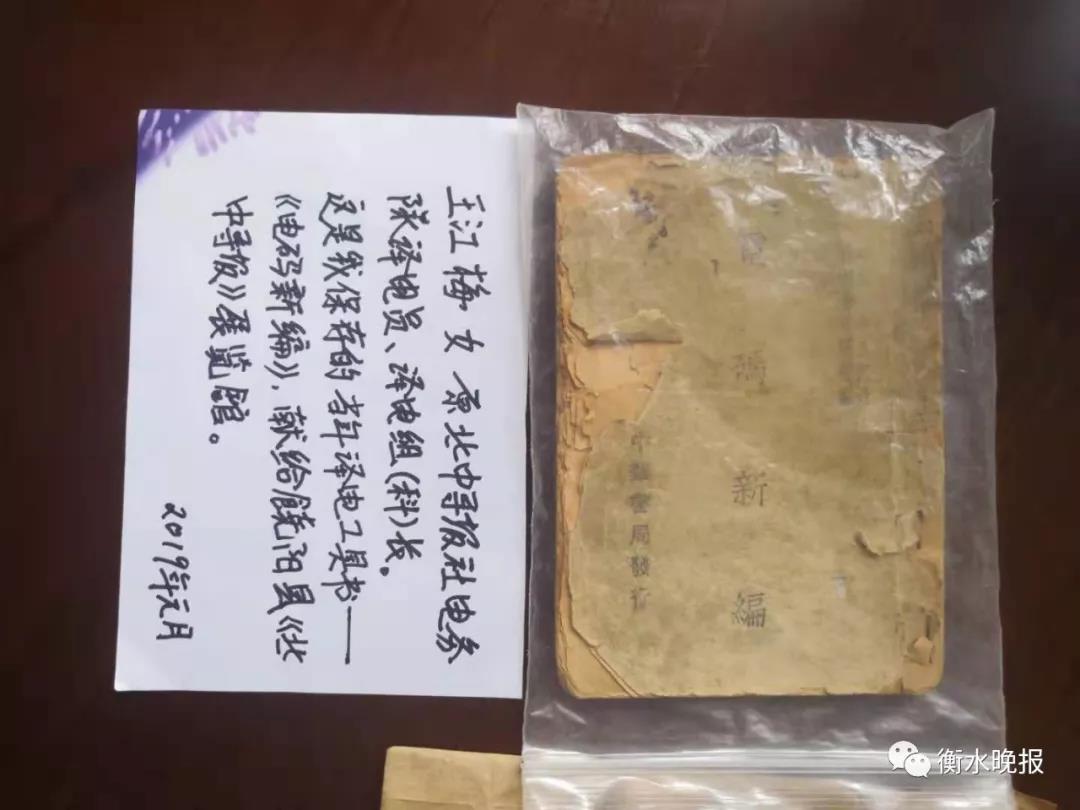 王江梅 女 原北中导报社电务
队译电员、译电组(科)长。
这是我保存的当年译电工具书——
《电码新编》,献给饶阳县《北
中导报》展览馆。
2019年元月
電碼新編
中華書局發行
衡水晚报